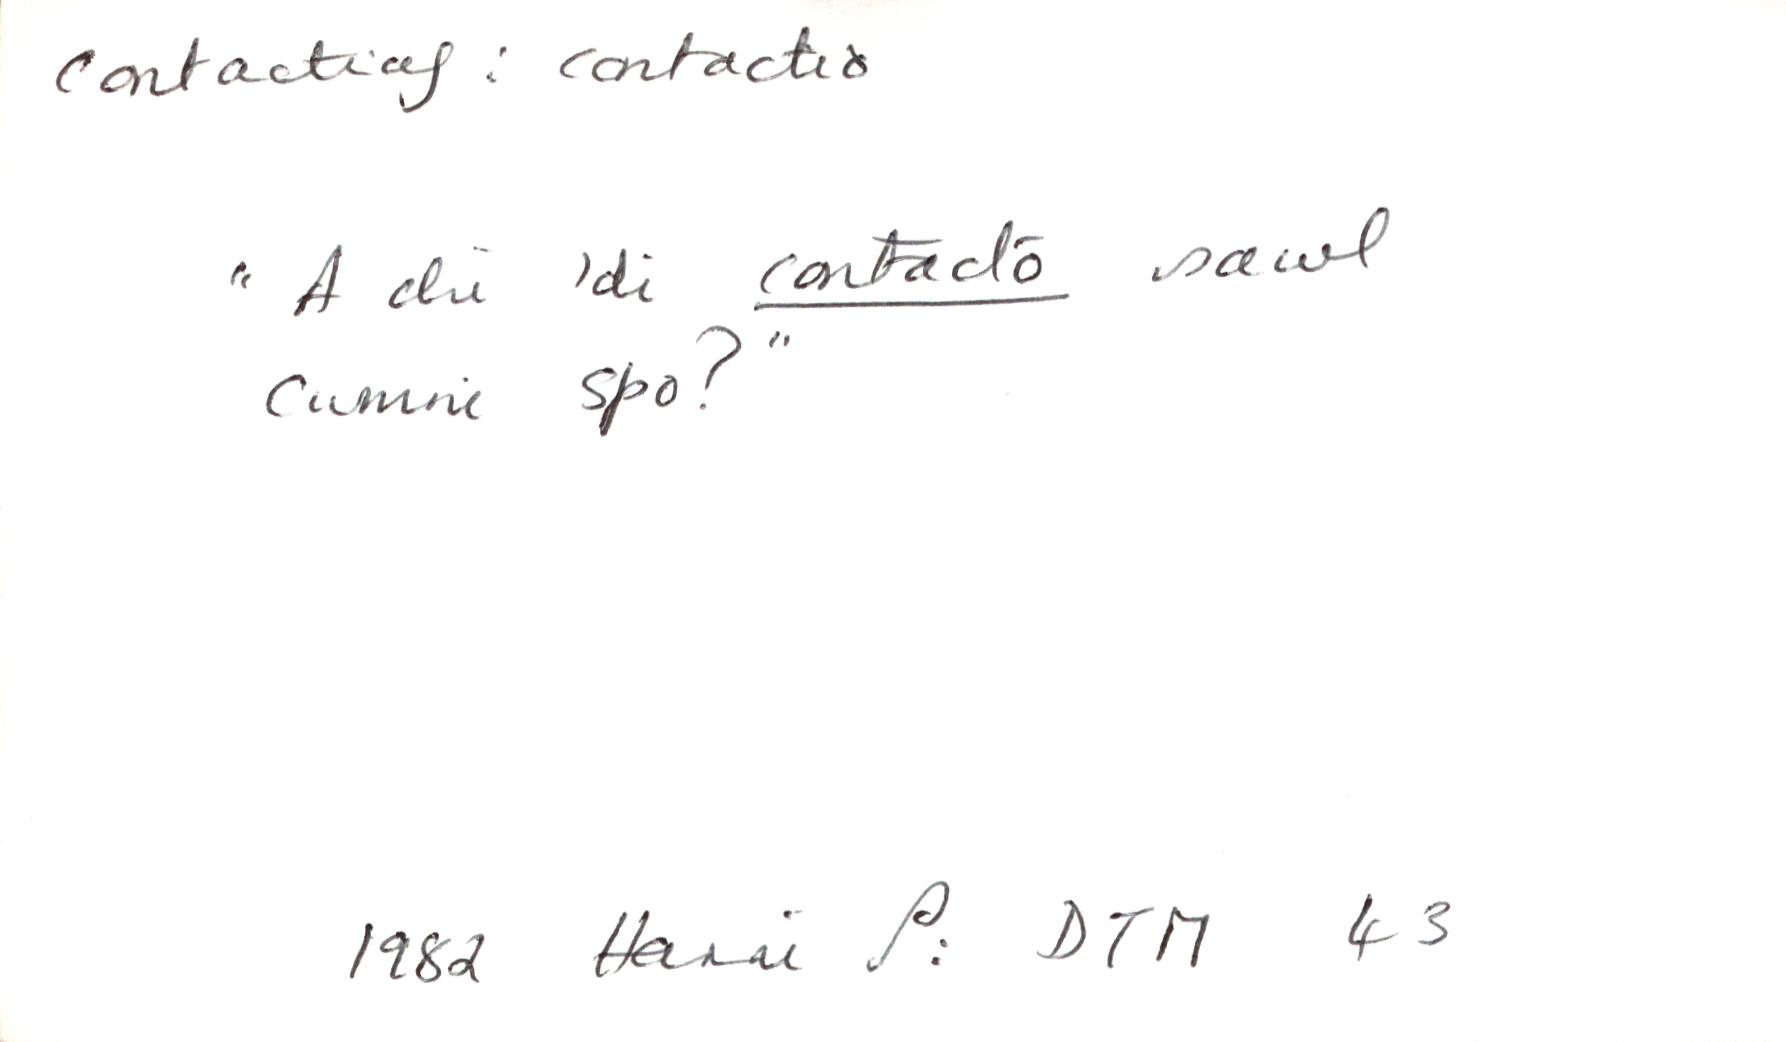 contactiaf : contactio
"A chi 'di contactō sawl
Cwmni spo?"
1982 Harri P: DTM 43